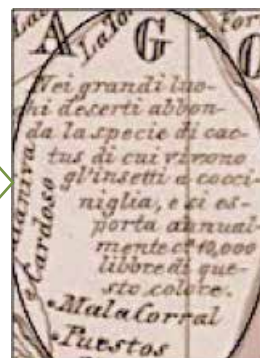 A G
La To
For
Nei grandi luo-
hi deserti abbon-
da la specie di cac-
tus di cui vivono
gl'insetti a cocci-
niglia, e si es-
porta annual-
mente cª 10,000
libbre di que-
sto colore.
Maniva
Cardoso
Mala Corral
Puestos